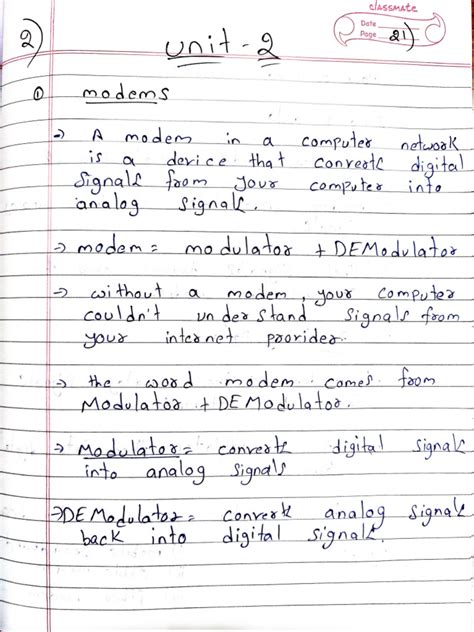 classmate
Date
Page 21)
2) Unit - 2
① modems
→ A modem in a computer network
is a device that converts digital
signals from your computer into
analog signals.
→ modem = modulator + DEModulator
→ without a modem, your computer
couldn't understand signals from
your internet provider.
→ the word modem comes from
Modulator + DEModulator.
→ Modulator = converts digital signals
into analog signals
→ DEModulator = converts analog signals
back into digital signals.